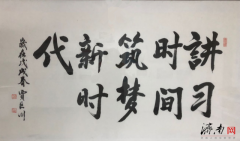 讲习
时间
筑梦
新时
代
岁在戊戌春